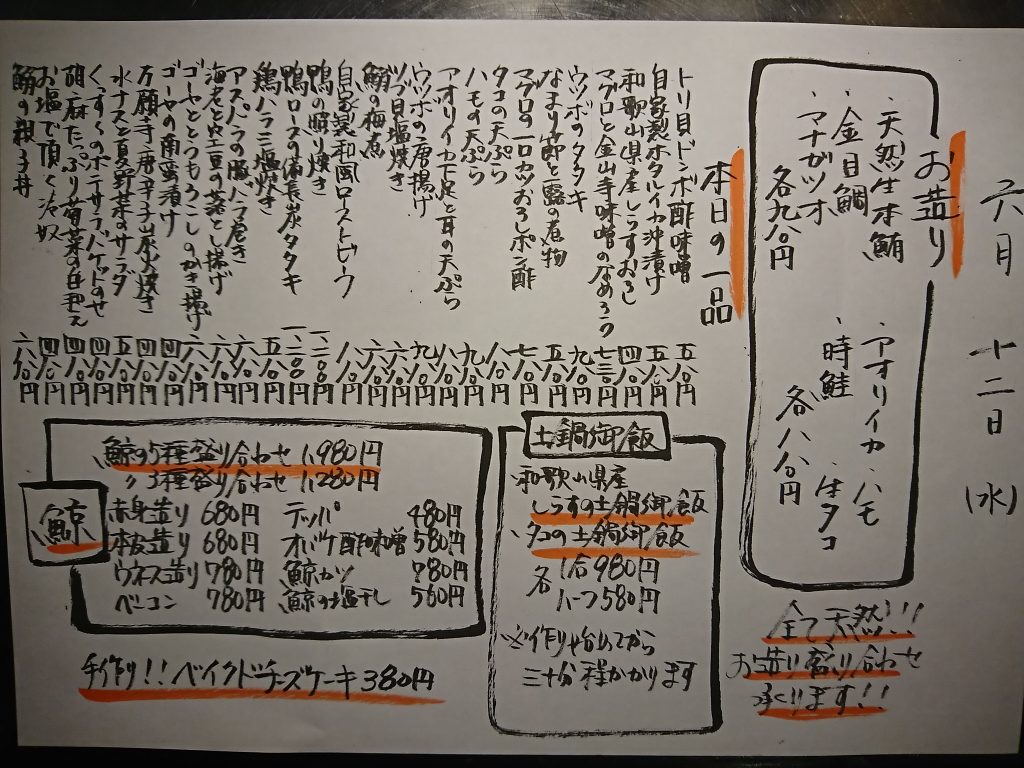 六月 十二日 (水)
お造り
・天然生本鮪
・金目鯛
・マナガツオ
各九八〇円
・アオリイカ ・ハモ
・時鮭 ・生タコ
各八八〇円
全て天然!!
お造り盛り合わせ
承ります!!
本日の一品
トリ貝ドンボ酢味噌 五八〇円
自家製ホタルイカ沖漬け 五八〇円
和歌山県産しらすおろし 四八〇円
マグロと金山寺味噌のなめろう 七三〇円
ウツボのタタキ 九八〇円
なまり節と露の煮物 五八〇円
マグロの一口カツおろしポン酢 七八〇円
タコの天ぷら 八八〇円
ハモの天ぷら 九八〇円
アオリイカ下足と耳の天ぷら 八八〇円
ウツボの唐揚げ 九八〇円
ツブ貝塩焼き 六八〇円
鰯の梅煮 六八〇円
自家製和風ローストビーフ 八八〇円
鴨の照り焼き 一、二八〇円
鴨ロースの備長炭タタキ 一、二八〇円
鶏ハラミ塩焼き 五八〇円
アスパラの豚バラ巻き 六八〇円
海老と空豆の落とし揚げ 六八〇円
ゴーヤととうもろこしのかき揚げ 六八〇円
ゴーヤの南蛮漬け 四八〇円
万願寺唐辛子炭火焼き 四八〇円
水ナスと夏野菜のサラダ 五八〇円
くんすくのポテサラバケットのせ 四八〇円
胡麻たっぷり菊菜の白和え 四八〇円
お塩で頂く冷奴 四八〇円
鰯の親子丼 六八〇円
土鍋御飯
和歌山県産
しらすの土鍋御飯
タコの土鍋御飯
各 1合980円
ハーフ580円
※作り始めてから
三十分程かかります
鯨
鯨の5種盛り合わせ 1,980円
〃3種盛り合わせ 1,280円
赤身造り 680円 テッパ 480円
本皮造り 680円 オバケ酢味噌 580円
ウネス造り 780円 鯨カツ 780円
ベーコン 780円 鯨の塩干し 560円
手作り!!ベイクドチーズケーキ380円